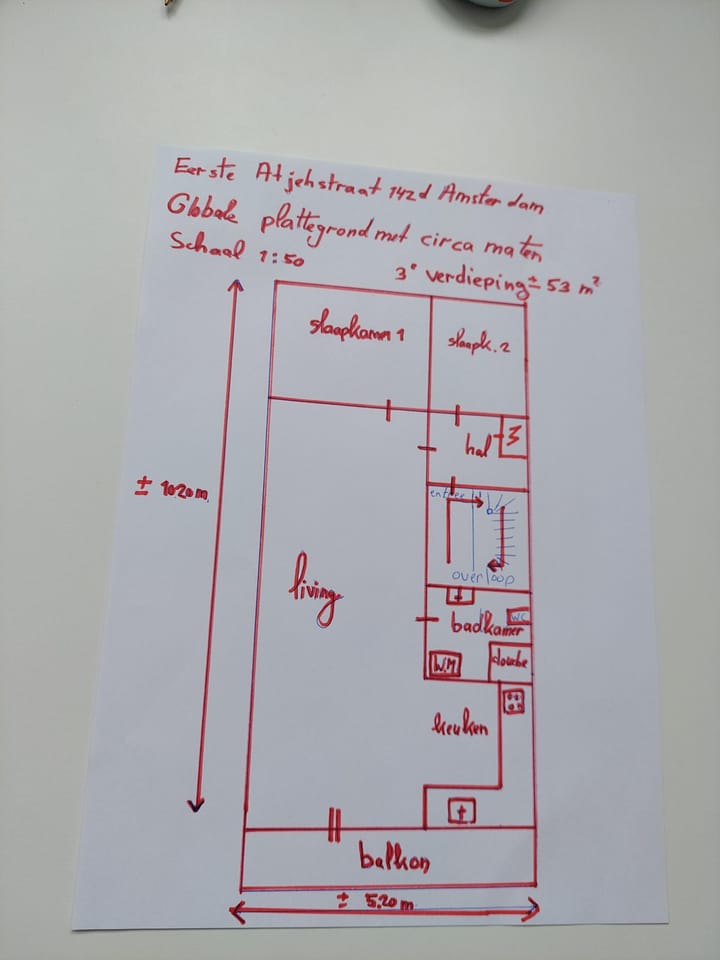 Eerste Atjehstraat 142d Amsterdam
Globale plattegrond met circa maten
Schaal 1:50
3e verdieping ± 53 m²
slaapkamer 1
slaapk. 2
hal
± 10.20 m
entree
overloop
living
badkamer
WC
WM
douche
keuken
balkon
± 5.20 m